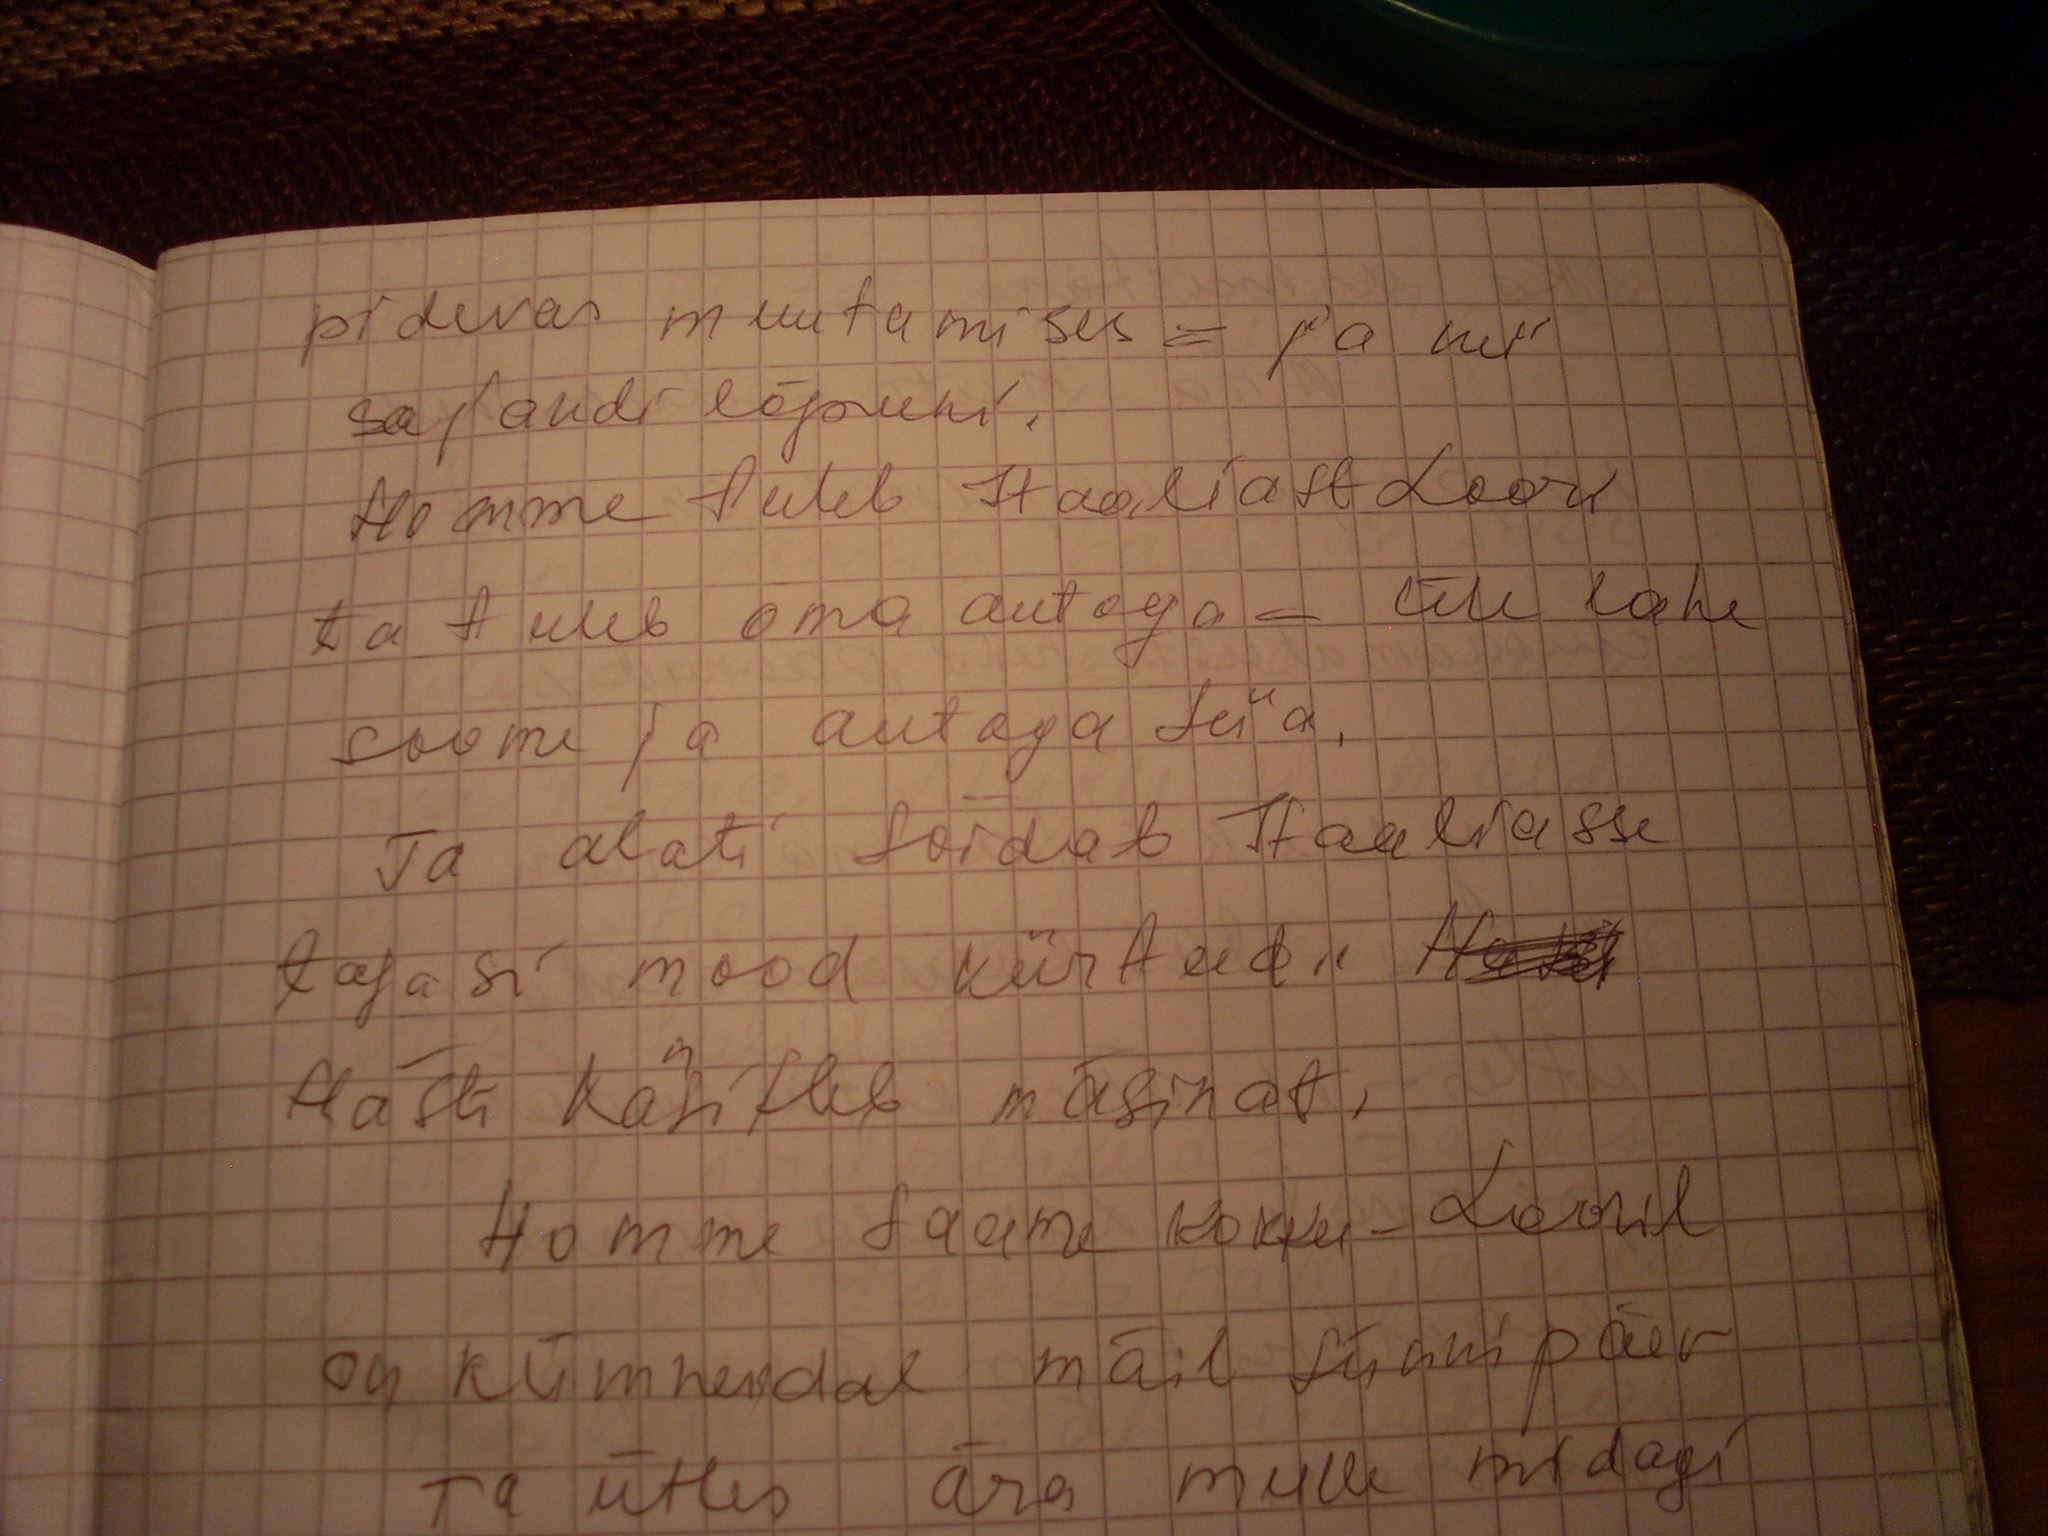 pidevas muutumises = ja nii
sajandi lõpuni.
Homme tuleb Itaaliast Loori
ta tuleb oma autoga - üle lahe
soome ja autoga siia.
Ta alati sõidab Itaaliasse
tagasi mööd
Hästi Käsitleb mäsinat,
Homme saame kokku - Looril
on kümnendal mäil sünnipäev
Ta ütles ära mulle midagi